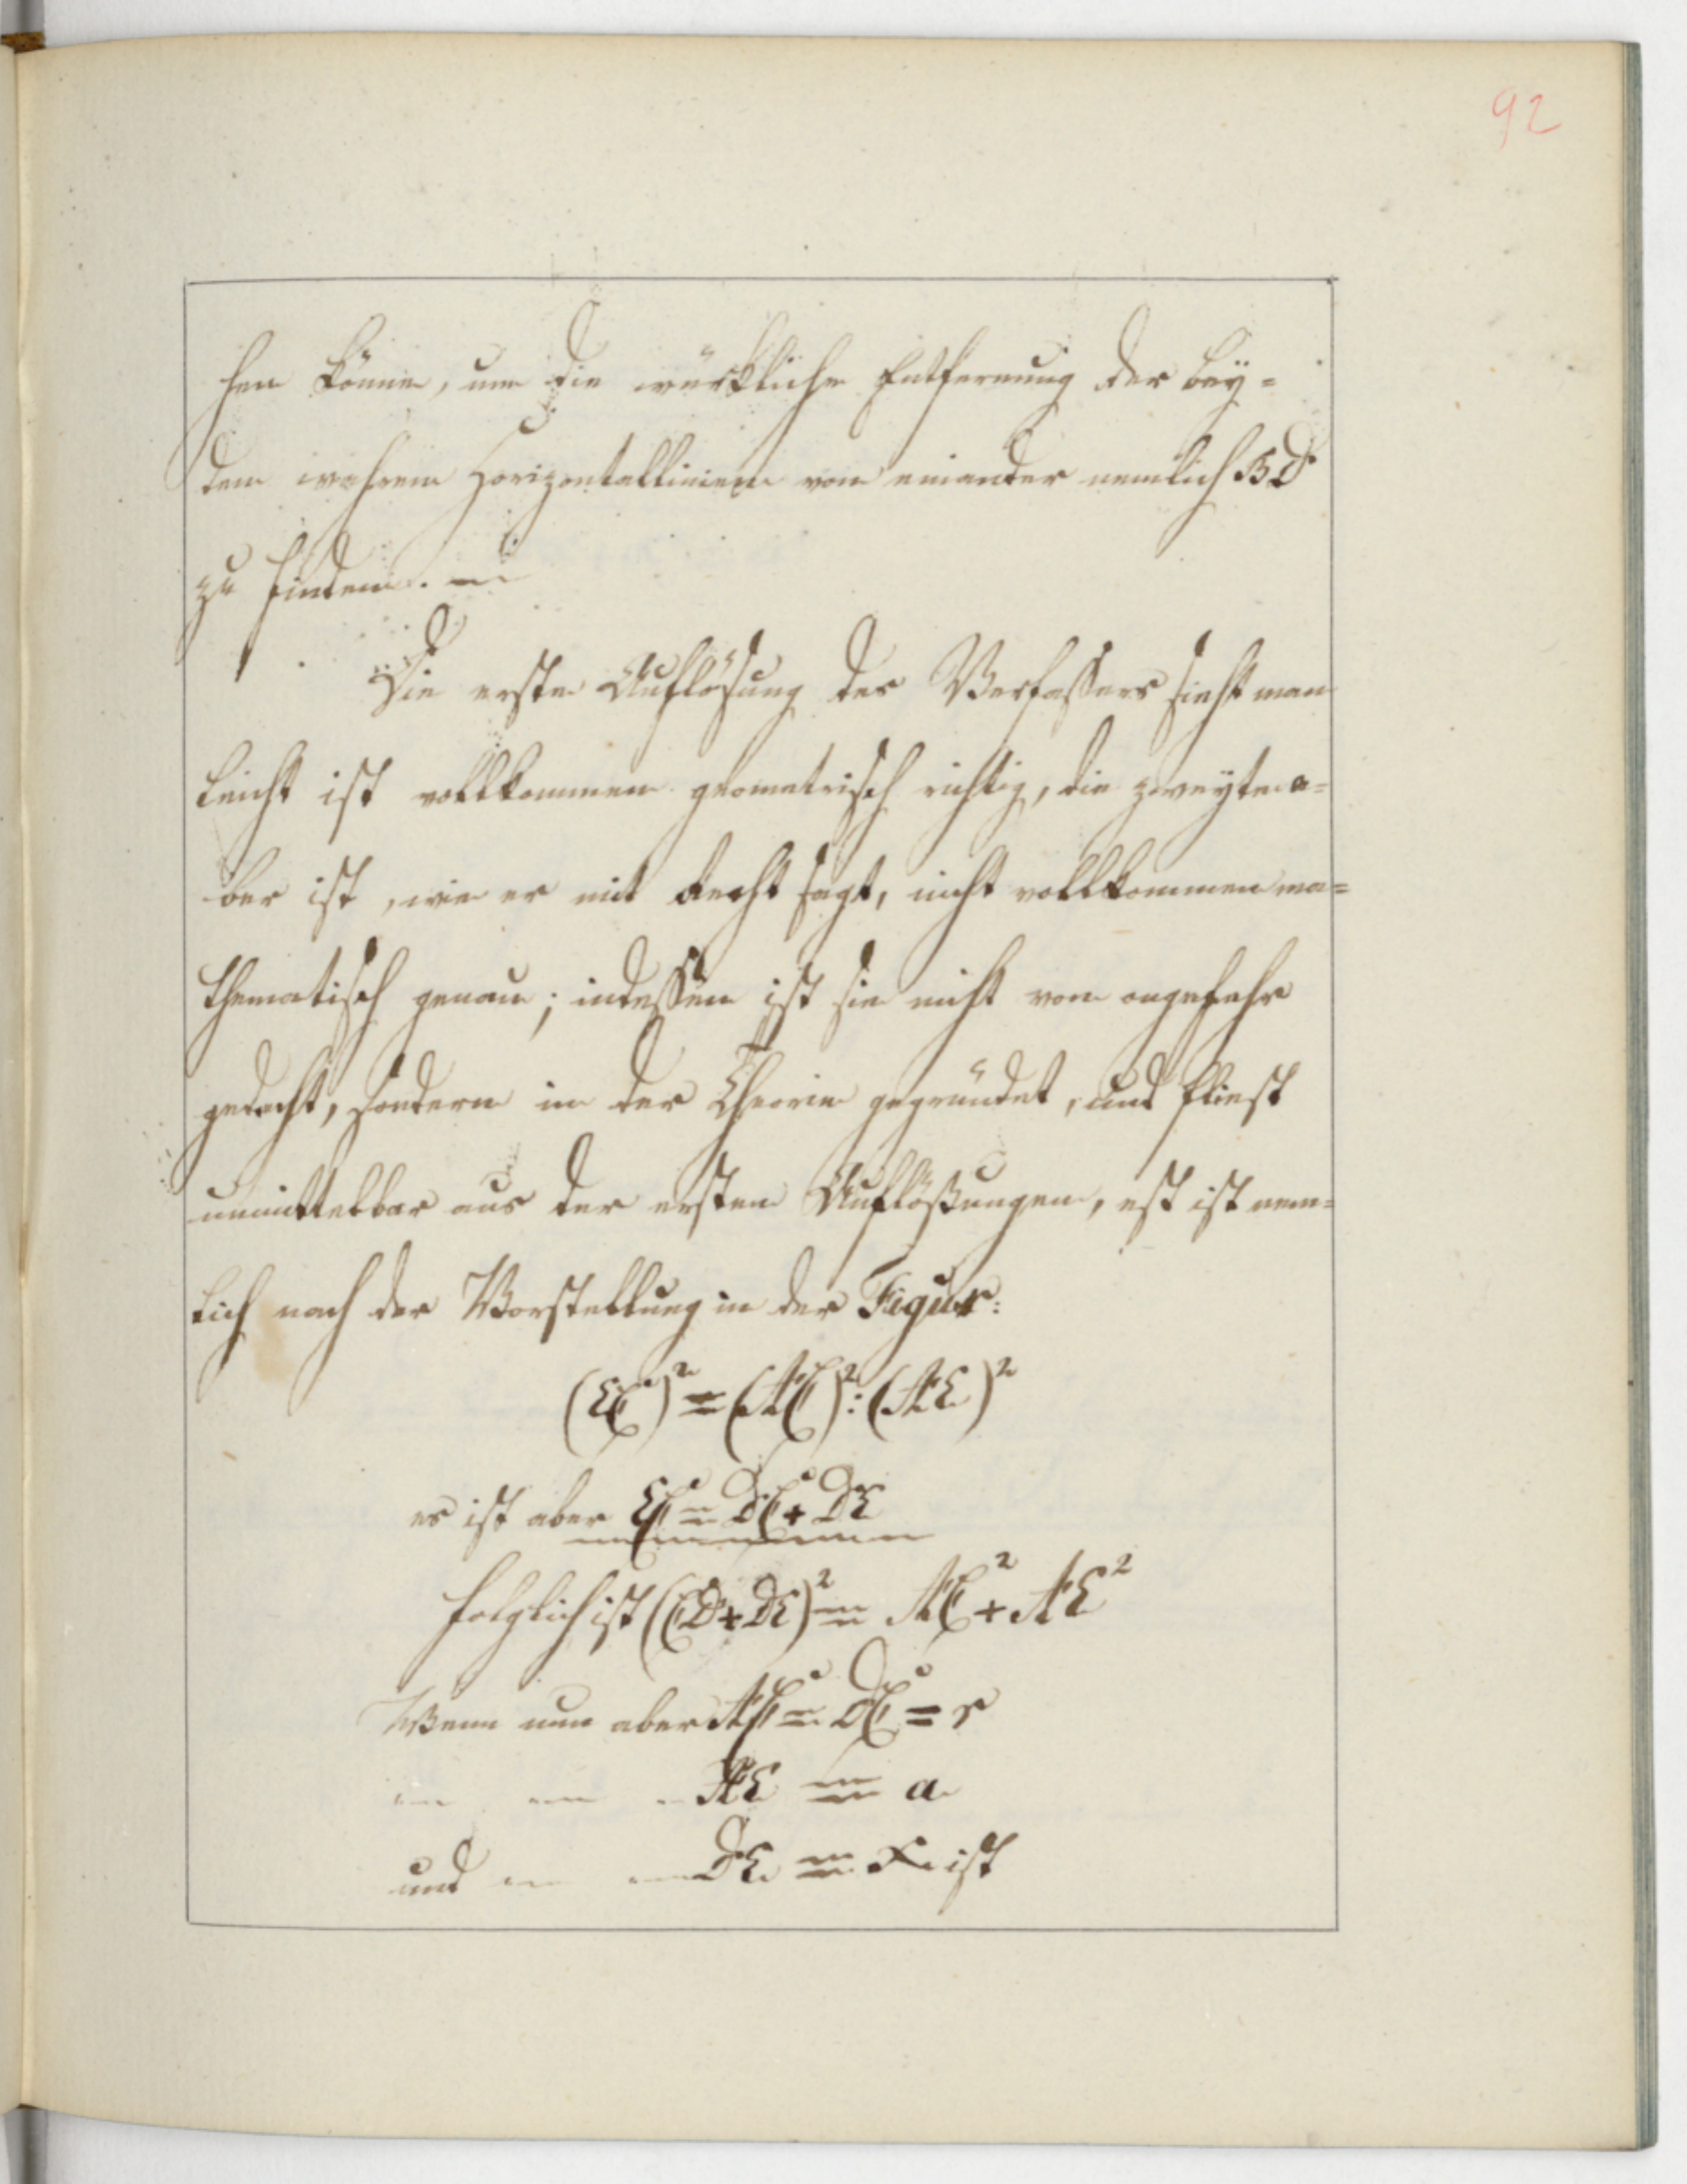 92
hen könne, um die würkliche Entfernung der bey=
den wahren Horizontallinien von einander nemlich BD
zu finden. —
Die erste Auflösung des Verfassers sieht man
leicht ist vollkommen geometrisch richtig, die zweyte a=
ber ist, wie er mit Recht sagt, nicht vollkommen ma=
thematisch genau; indessen ist sie nicht von ongefehr
gedacht, sondern in der Theorie gegründet, und fliest
unmittelbar aus der ersten Auflößungen, est ist nem=
lich nach der Vorstellung in der Figur:
(EC)² = (AC)² : (AE)²
es ist aber EC = DC + DE
folglich ist (CD + DE)² = AC² + AE²
Wenn nun aber AC = DC = r
— — — AE = a
und — — DE = x ist